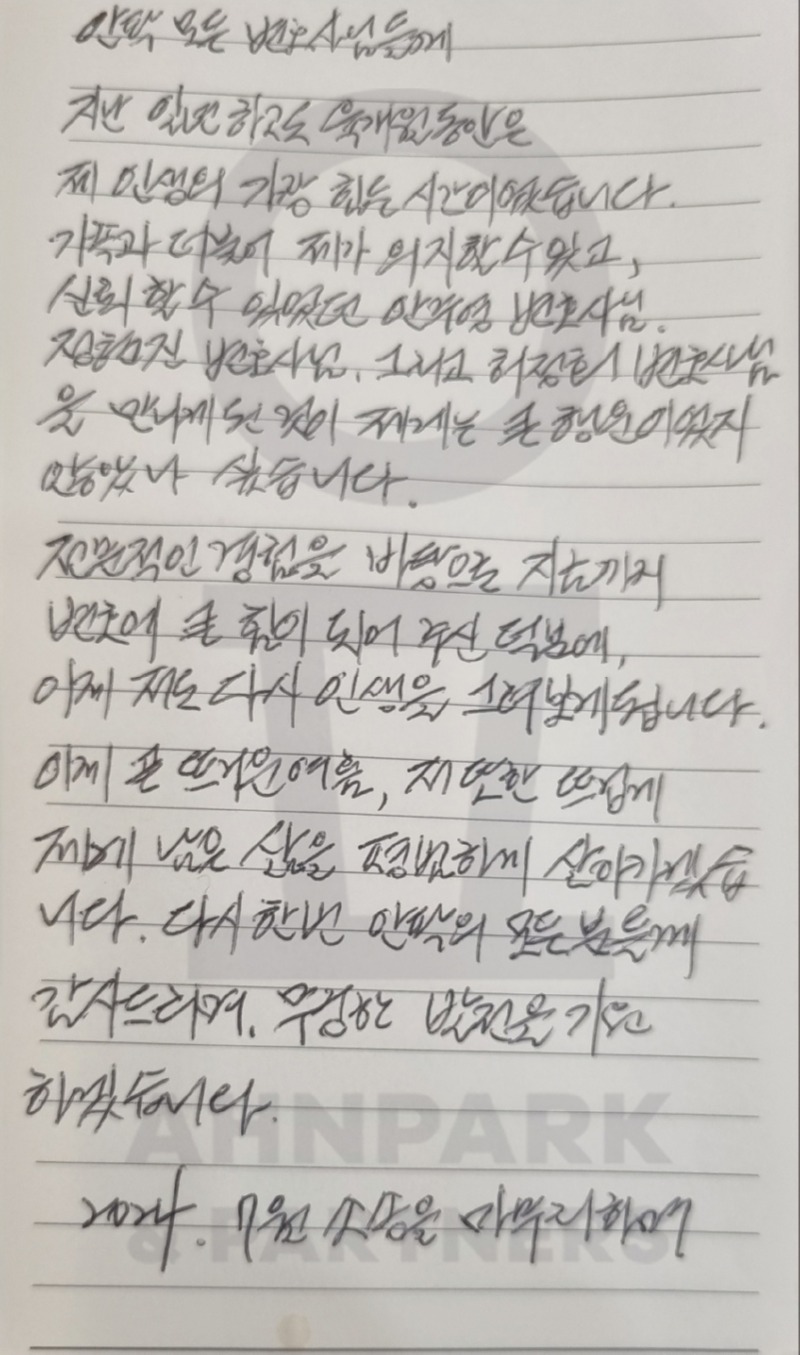 안팍 모든 변호사님들께
지난 일년하고도 육개월동안은
제 인생의 가장 힘든 시간이였습니다.
가족과 더불어 제가 의지할 수 있고,
신뢰 할 수 있었던 안주영 변호사님.
정현진 변호사님. 그리고 허정회 변호사님
을 만나게 된 것이 제게는 큰 행운이였지
않았나 싶습니다.
전문적인 경험을 바탕으로 지금까지
변호에 큰 힘이 되어 주신 덕분에,
이제 저도 다시 인생을 그려보게 됩니다.
이제 곧 뜨거운 여름, 저 또한 뜨겁게
제게 남은 삶을 평범하게 살아가겠습
니다. 다시한번 안팍의 모든 분들께
감사드리며. 무궁한 발전을 기원
하겠습니다.
AHNPARK
2024. 7월 소송을 마무리하며
& PARTNERS